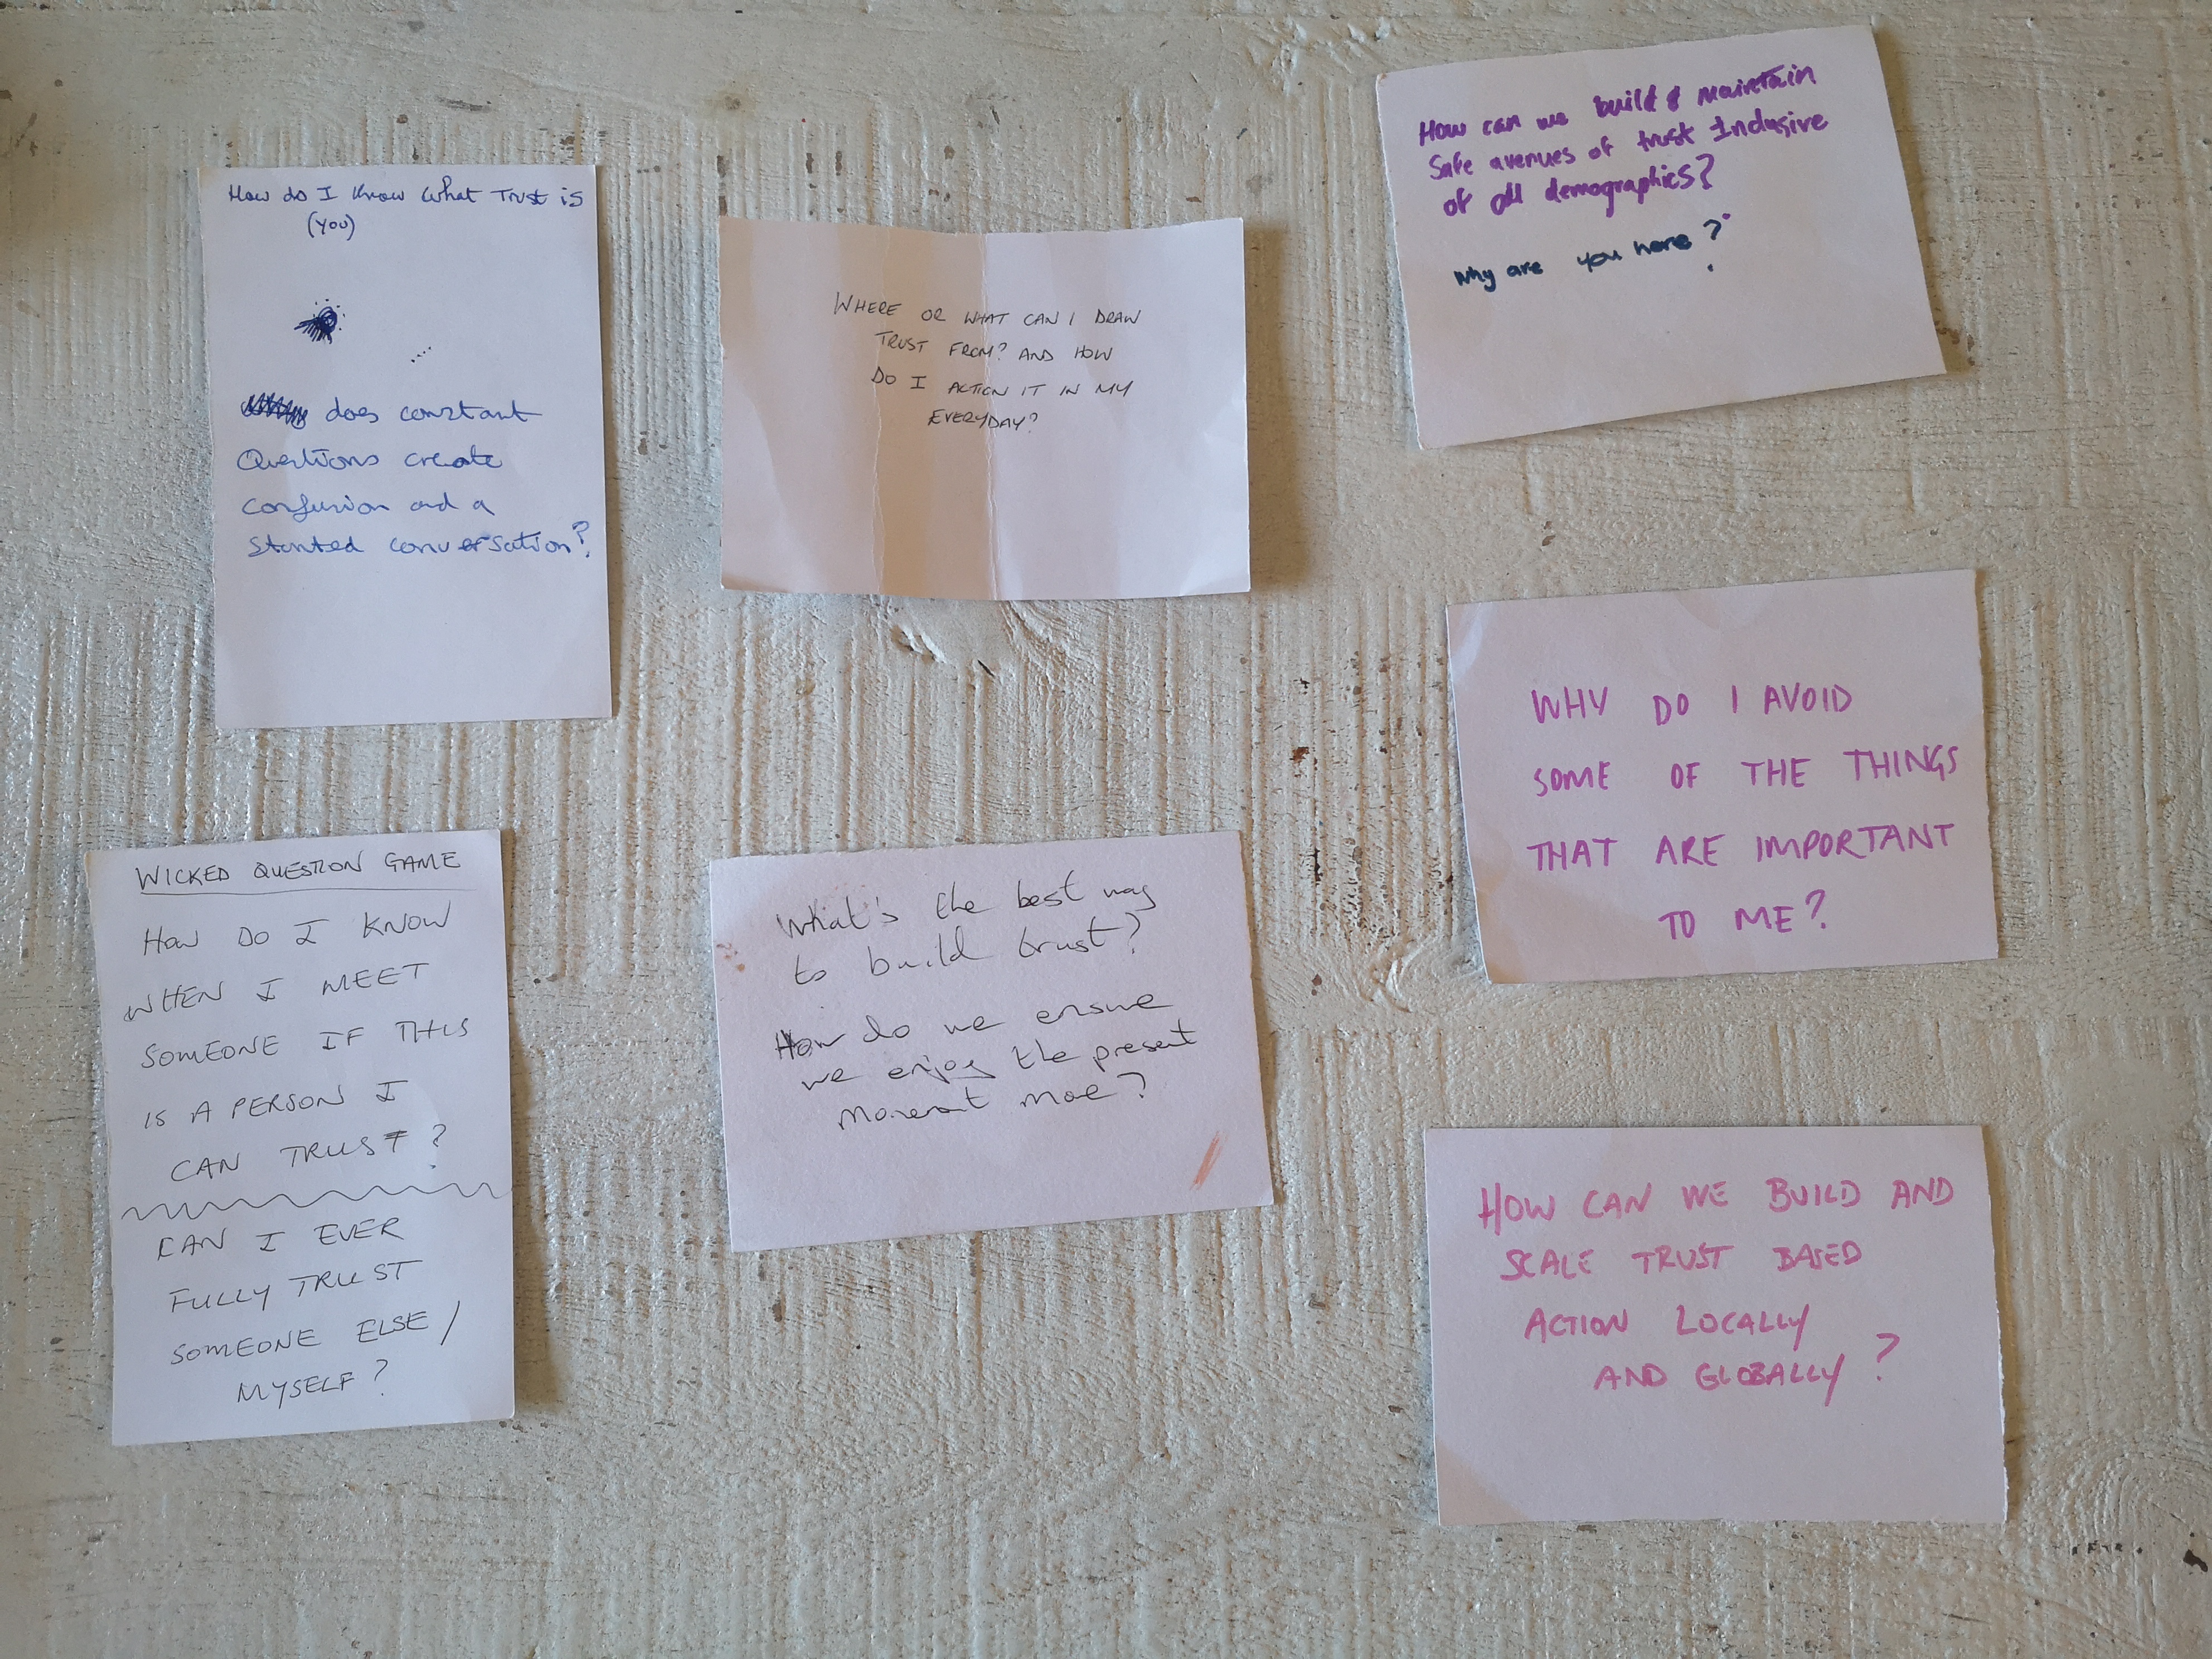 How do I know what Trust is
(you)
does constant
Questions create
confusion and a
stunted conversation?
WHERE OR WHAT CAN I DRAW
TRUST FROM? AND HOW
DO I ACTION IT IN MY
EVERYDAY?
How can we build & maintain
safe avenues of trust Inclusive
of all demographics?
Why are you here?
WHY DO I AVOID
SOME OF THE THINGS
THAT ARE IMPORTANT
TO ME?
WICKED QUESTION GAME
HOW DO I KNOW
WHEN I MEET
SOMEONE IF THIS
IS A PERSON I
CAN TRUST?
CAN I EVER
FULLY TRUST
SOMEONE ELSE/
MYSELF?
What's the best way
to build trust?
How do we ensure
we enjoy the present
moment more?
HOW CAN WE BUILD AND
SCALE TRUST BASED
ACTION LOCALLY
AND GLOBALLY?